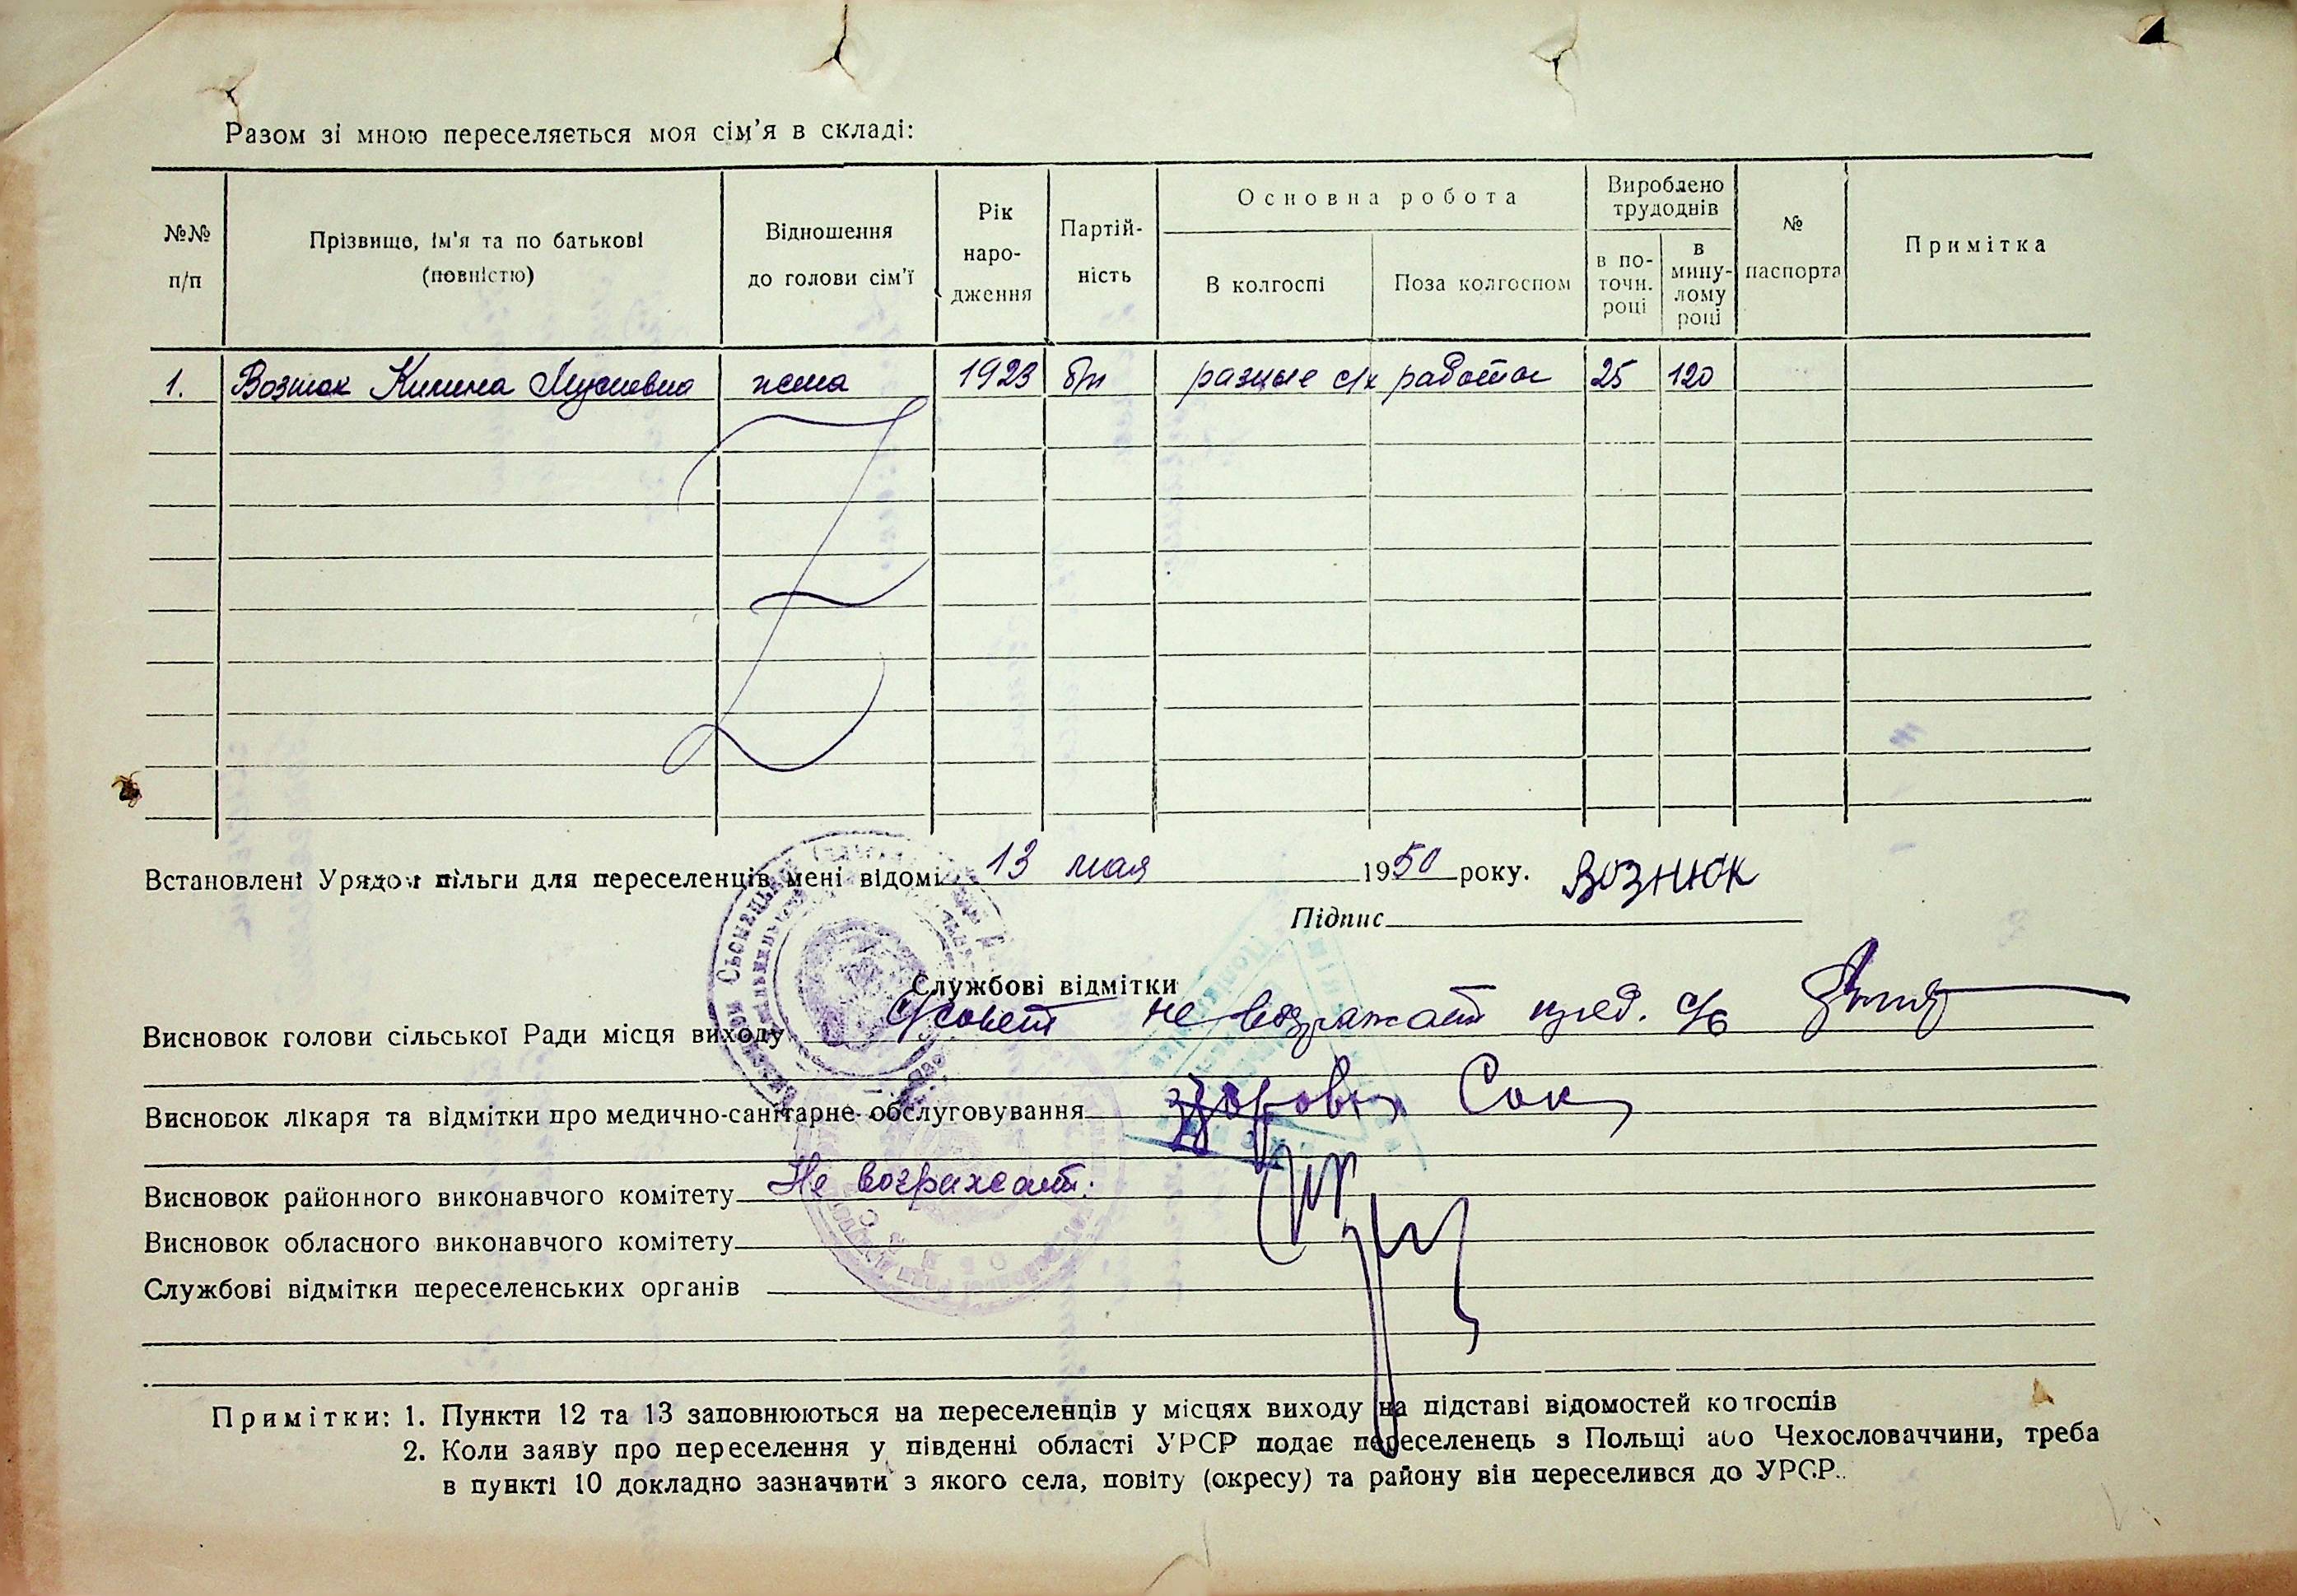 Разом зі мною переселяється моя сім'я в складі:
№№ п/п
Прізвище, ім'я та по батькові (повністю)
Відношення до голови сім'ї
Рік наро-дження
Партій-ність
Основна робота
В колгоспі
Поза колгоспом
Вироблено трудоднів
в по-точн. році
в мину-лому році
№ паспорта
Примітка
1. Вознюк Килина жена 1923 б/п разные с/х работы 25 120
Встановлені Урядом пільги для переселенців мені відомі 13 мая 1950 року. Вознюк
Підпис
Службові відмітки
Висновок голови сільської Ради місця виходу С/совет не возражает пред. с/с
Висновок лікаря та відмітки про медично-санітарне обслуговування здорова
Висновок районного виконавчого комітету Не возражает.
Висновок обласного виконавчого комітету
Службові відмітки переселенських органів
Примітки: 1. Пункти 12 та 13 заповнюються на переселенців у місцях виходу на підставі відомостей колгоспів
2. Коли заяву про переселення у південні області УРСР подає переселенець з Польщі або Чехословаччини, треба
в пункті 10 докладно зазначити з якого села, повіту (окресу) та району він переселився до УРСР.